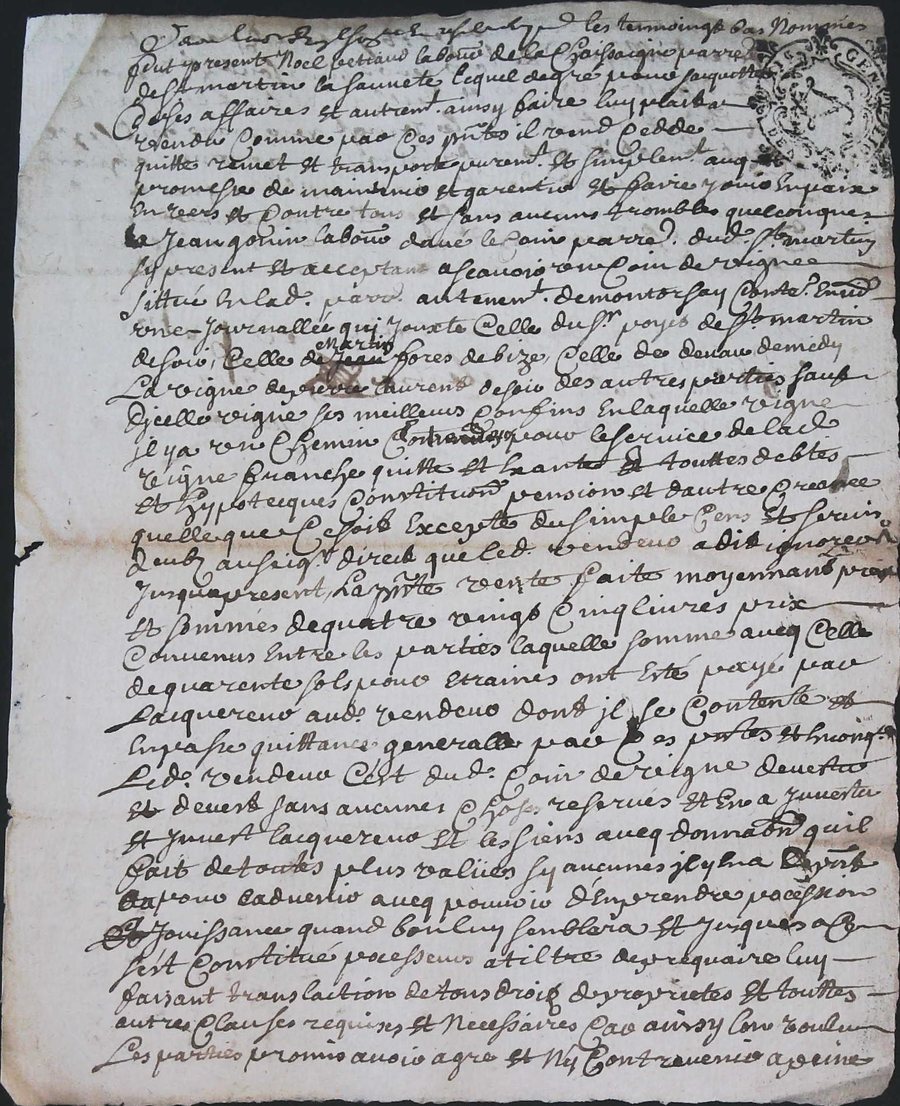 Pardevant le not. Royal soubsigné et les temoings bas Nommés
fut present Noel bertrand labour. de la Chassaigne parre.
de st martin la sauveté Lequel de gré pour sacquitter
de ses affaires et autremt. ainsy faire luy plait a
vendu comme par ces pntes il vend cedde
quitte remet et transporte puremt. et simplemt. avq
promesse de maintenir et garentir et faire jouir En paix
Envers et Contre tous et sans aucuns troubles quelconques
a Jean gonin labour. du lieu parre. dud. st martin
sy present et acceptant a scavoir un Coin de vigne
sittué En lad. parr. au tenemt. de montorsay Conte. Environ
une Journallée qui Jouxte Celle du sr. poyet de st martin
de soir, Celle de Martin fores de bize, Celle de denau de medy
La vigne de pierre laurent de soir des autres parties sauf
dicelle vigne ses meilleurs Confins En laquelle vigne
il y a un Chemin pour le service de lad.
vigne franche quitte et Exante de touttes debtes
et hypotecques Constituon. pension et d'autre Creance
quelle que Ce soit Excepté du simple Cens et servis
deub au seigr. direct que led. vendeur a dit ignorer
Jusqu'a present, La pnte vente faite moyennant prix
et sommes de quatre vingt Cinq livres prix
Convenus Entre les parties laquelle somme avecq Celle
de quarente sols pour Etraines ont Esté payé par
Lacquereur aud. vendeur dont il se Contente et
En passe quittance generalle par Ces pntes et moyent.
Led. vendeur C'est dud. Coin de vigne devetu
et devest sans aucunes Choses reservés et En a Juvestu
et Juvest lacquereur et les siens avecq donnaon. qu'il
fait de toutes plus valües sy aucunes il y En a
pour ladvenir avecq pouvoir d'En prendre pocession
et Jouissance quand bon luy semblera et Jusques a Ce
sest Constitué possesseur a tiltre de prequaire luy
faisant translaction de tous droits de proprietes et touttes
autres Clauses requises et Necessaires Car ainsy lon voulu
Les parties promis avoir agré et N'y Contrevenir a peine